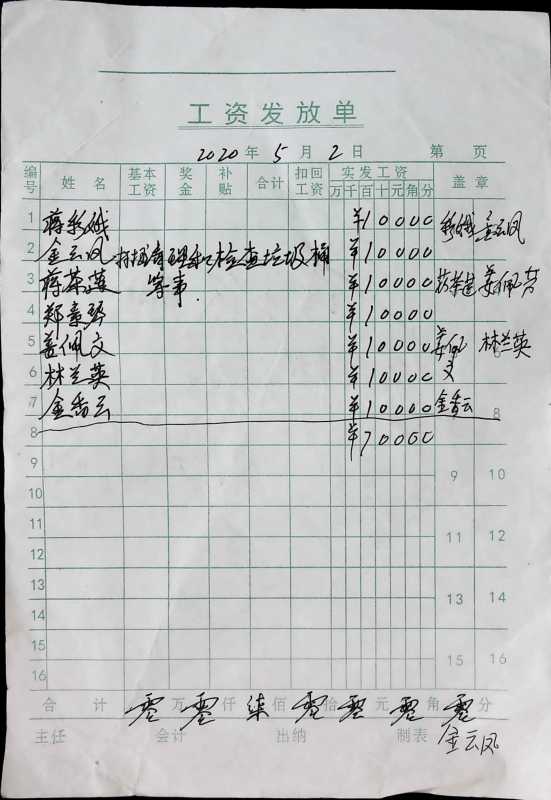 工资发放单
2020 年 5 月 2 日 第 页
编号 姓名 基本工资 奖金 补贴 合计 扣回工资 实发工资 万千百十元角分 盖章
1 蒋彩娥 ¥10000 彩娥 金云凤
2 金云凤 打扫 和检查垃圾桶 ¥10000
3 蒋荣莲 等事. ¥10000 姜佩
4 郑素琴 ¥10000
5 姜佩文 ¥10000 姜佩文 林兰英
6 林兰英 ¥10000
7 金香云 ¥10000 金香云 8
8 ¥70000
9 9 10
10
11 11 12
12
13 13 14
14
15 15 16
16
合计 零万零仟柒佰零拾零元零角零分
主任 会计 出纳 制表 金云凤